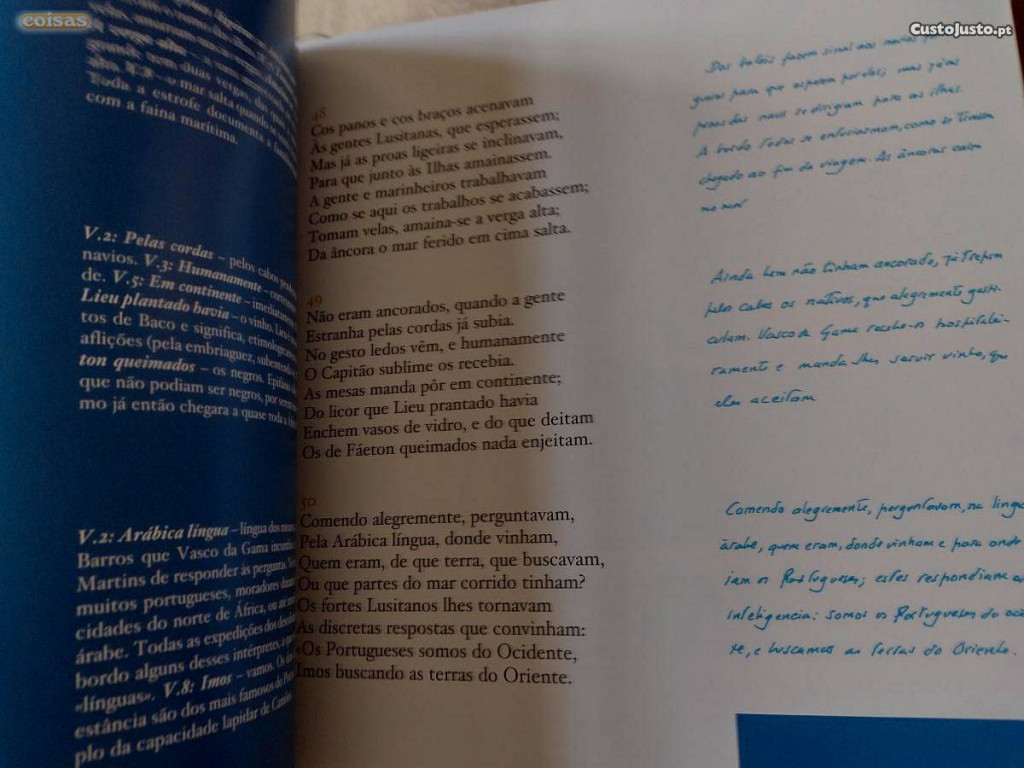 coisas
CustoJusto.pt
Toda a estrofe documenta a
com a faina marítima.
V.2: Pelas cordas – pelos cabos
navios. V.3: Humanamente –
de. V.5: Em continente –
Lieu plantado havia – o vinho.
tos de Baco e significa,
aflições (pela embriaguez,
ton queimados – os negros.
que não podiam ser negros, por
mo já então chegara a quase toda a
V.2: Arábica língua – língua dos
Barros que Vasco da Gama
Martins de responder às perguntas.
muitos portugueses, moradores
cidades do norte de África, ou
árabe. Todas as expedições dos
bordo alguns desses intérpretes,
«línguas». V.8: Imos – vamos. Os
estância são dos mais famosos do
plo da capacidade lapidar de Camões.
48
Cos panos e cos braços acenavam
Às gentes Lusitanas, que esperassem;
Mas já as proas ligeiras se inclinavam,
Para que junto às Ilhas amainassem.
A gente e marinheiros trabalhavam
Como se aqui os trabalhos se acabassem;
Tomam velas, amaina-se a verga alta;
Da âncora o mar ferido em cima salta.
49
Não eram ancorados, quando a gente
Estranha pelas cordas já subia.
No gesto ledos vêm, e humanamente
O Capitão sublime os recebia.
As mesas manda pôr em continente;
Do licor que Lieu prantado havia
Enchem vasos de vidro, e do que deitam
Os de Fáeton queimados nada enjeitam.
50
Comendo alegremente, perguntavam,
Pela Arábica língua, donde vinham,
Quem eram, de que terra, que buscavam,
Ou que partes do mar corrido tinham?
Os fortes Lusitanos lhes tornavam
As discretas respostas que convinham:
«Os Portugueses somos do Ocidente,
Imos buscando as terras do Oriente.
Dos batéis fazem sinal aos navios
para que esperem por eles; mas já as
proas das naus se dirigiam para as ilhas.
A bordo todos se entusiasmam, como se tivessem
chegado ao fim da viagem. As âncoras caem
no mar
Ainda bem não tinham ancorado, já trepam
pelos cabos os nativos, que alegremente gesti-
culam. Vasco da Gama recebe-os hospitalei-
ramente e manda-lhes servir vinho, que
eles aceitam
Comendo alegremente, perguntavam, na língua
árabe, quem eram, donde vinham e para onde
iam os Portugueses; estes respondiam
inteligencia: somos os Portugueses do oc
te, e buscamos as terras do Oriente.